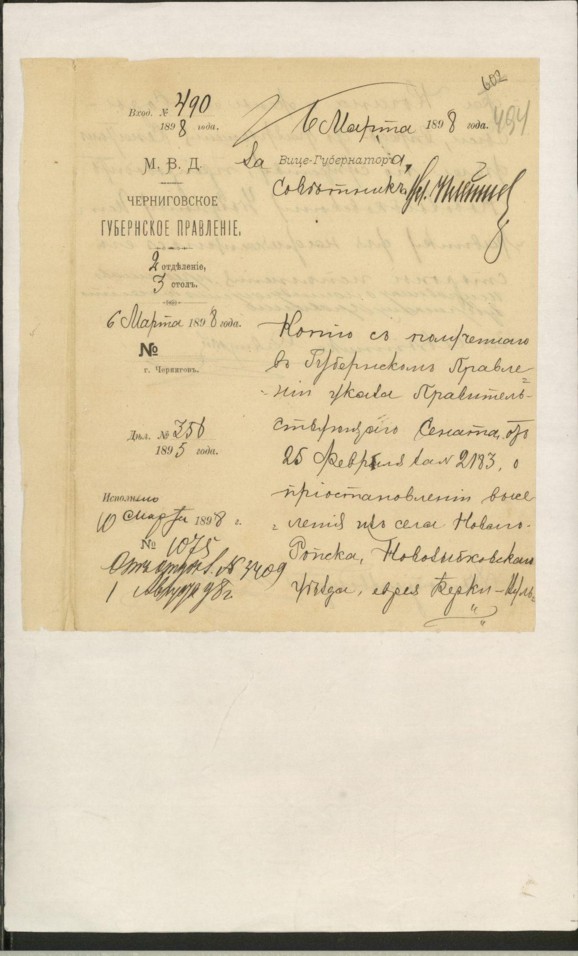 602
494
Вход. № 490
1898 года.
6 Марта 1898 года.
М. В. Д.
За Вице-Губернатора,
Советникъ
ЧЕРНИГОВСКОЕ
ГУБЕРНСКОЕ ПРАВЛЕНІЕ,
2 отдѣленіе,
3 столъ.
6 Марта 1898 года.
№
г. Черниговъ.
Дѣл. № 356
1895 года.
Исполнено
10 Марта 1898 г.
№ 1075
№ 3409
1 98 г
Копію съ полученнаго
въ Губернскомъ Правле=
ніи указа Правитель-
ствующаго Сената, отъ
25 Февраля за № 2183, о
пріостановленіи высе
=ленія изъ села Новаго-
Ропска, Новозыбковскаго
уѣзда, еврея Берки-